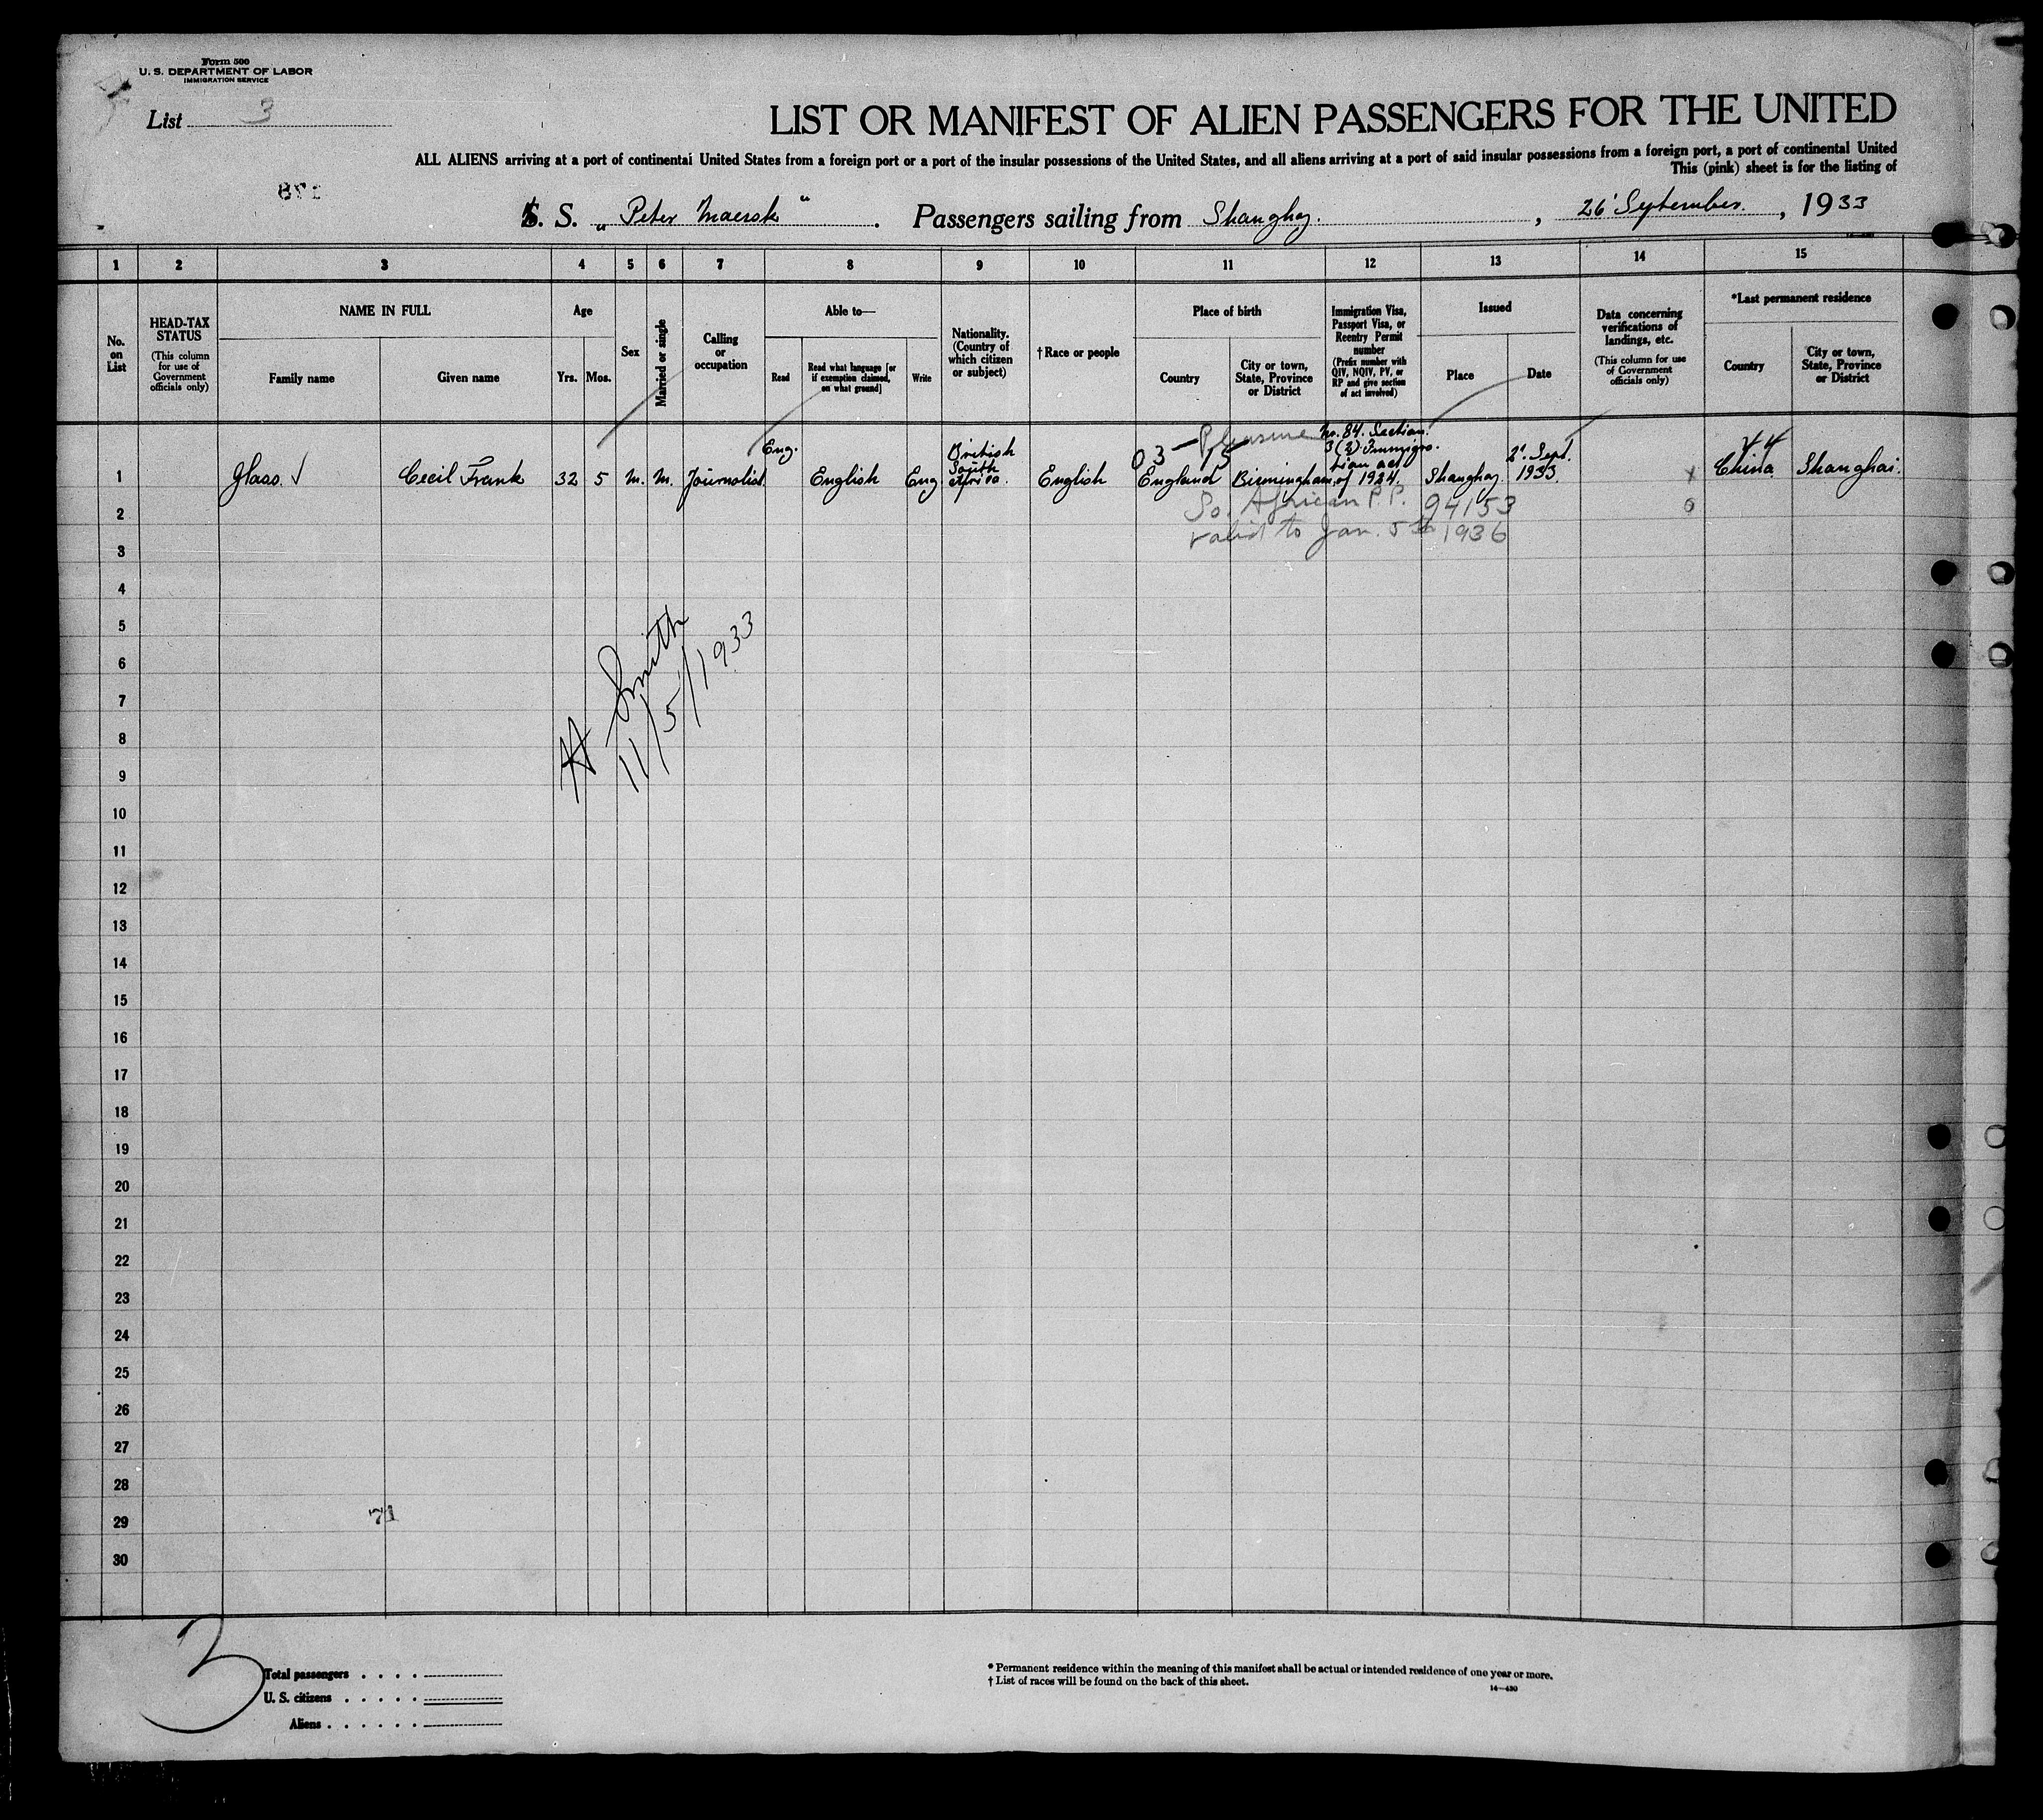 Form 500
U. S. DEPARTMENT OF LABOR
IMMIGRATION SERVICE
List 3
LIST OR MANIFEST OF ALIEN PASSENGERS FOR THE UNITED
ALL ALIENS arriving at a port of continental United States from a foreign port or a port of the insular possessions of the United States, and all aliens arriving at a port of said insular possessions from a foreign port, a port of continental United
This (pink) sheet is for the listing of
S. S. „ Peter Maersk “. Passengers sailing from Shanghay. , 26' September. , 1933
1 2 3 4 5 6 7 8 9 10 11 12 13 14 15
No. on List
HEAD-TAX STATUS
(This column for use of Government officials only)
NAME IN FULL
Family name
Given name
Age
Yrs. Mos.
Sex
Married or single
Calling or occupation
Able to—
Read
Read what language [or if exemption claimed, on what ground]
Write
Nationality. (Country of which citizen or subject)
† Race or people
Place of birth
Country
City or town, State, Province or District
Immigration Visa, Passport Visa, or Reentry Permit number
(Prefix number with QIV, NQIV, PV, or RP and give section of act involved)
Issued
Place
Date
Data concerning verifications of landings, etc.
(This column for use of Government officials only)
*Last permanent residence
Country
City or town, State, Province or District
03 — Pleasure
15
44
1 Glass. Cecil Frank 32 5 M. M. Journalist. Eng. English Eng British South Africa. English England Birmingham. No. 84. Section. 3(2) Immigration act of 1924. Shanghay 2' Sept. 1933. x China. Shanghai.
2 So. African P.P. 94153
3 valid to Jan. 5th 1936
4
5
6
7
8
9
H Smith
11/5/1933
10
11
12
13
14
15
16
17
18
19
20
21
22
23
24
25
26
27
28
29
71
30
3
Total passengers
U. S. citizens
Aliens
* Permanent residence within the meaning of this manifest shall be actual or intended residence of one year or more.
† List of races will be found on the back of this sheet.
14—430